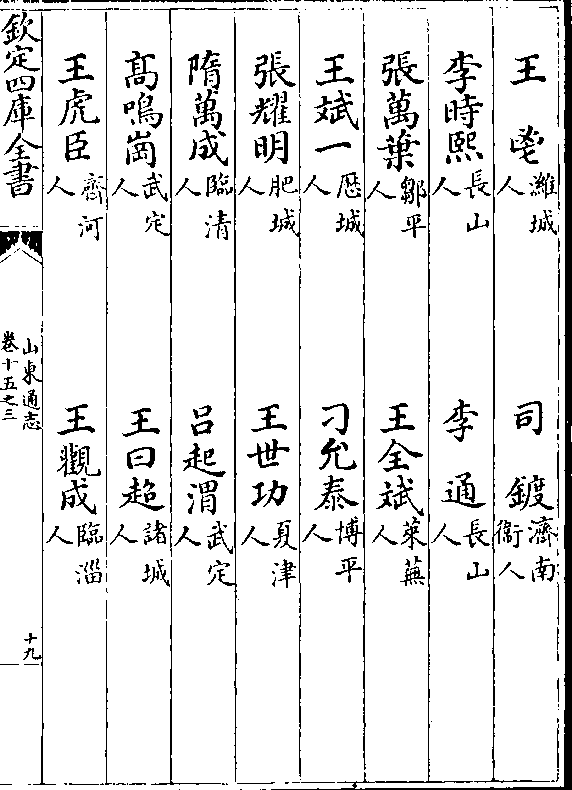 王　濰城人　司鍍濟南衞人
李時熙長山人　李通長山人
張萬葉鄒平人　王全斌萊蕪人
王斌一歴城人　刁允泰博平人
張耀明肥城人　王世功夏津人
隋萬成臨清人　吕起渭武定人
髙鳴崗武定人　王曰超諸城人
王虎臣齊河人　王觀成臨淄人
欽定四庫全書
山東通志
卷十五之三
十九